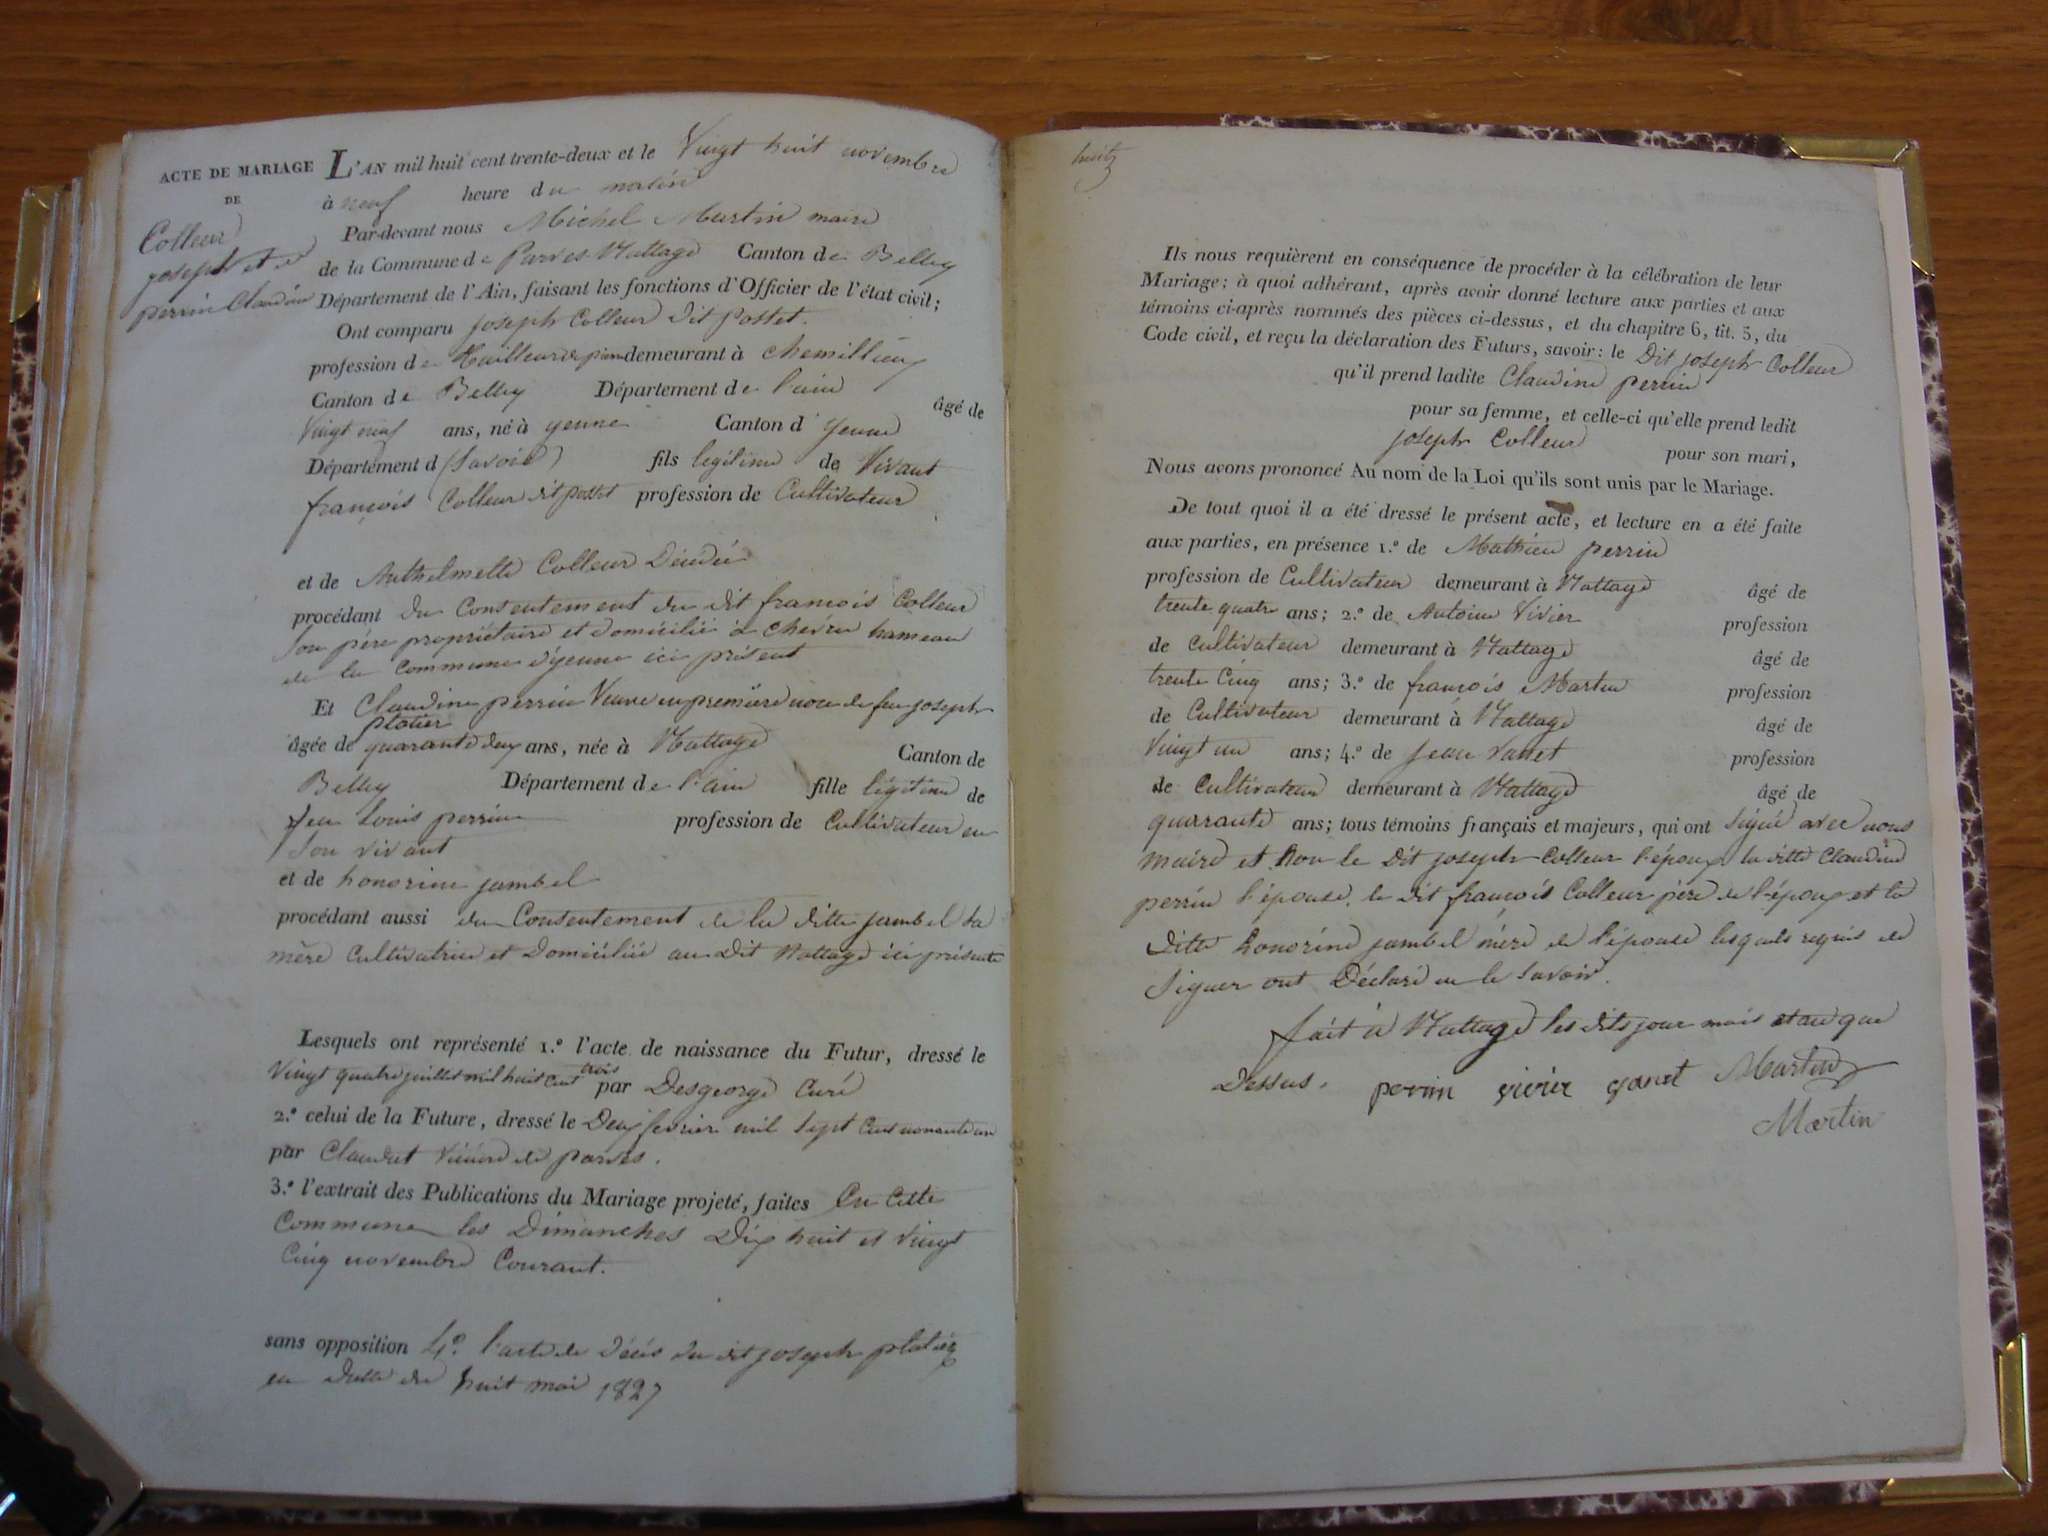 ACTE DE MARIAGE
DE
Colleur
joseph et
perrin Claudine
L'AN mil huit cent trente-deux et le Vingt huit novembre
à neuf heure du matin
Par-devant nous Michel Martin maire
de la Commune de Parves Nattage Canton de Belley
Département de l'Ain, faisant les fonctions d'Officier de l'état civil;
Ont comparu joseph Colleur dit Postet.
profession de tailleur de pierre demeurant à chemillieu
Canton de Belley Département de l'ain âgé de
Vingt neuf ans, né à yenne Canton d'yenne
Département d (Savoie) fils legitime de Vivant
françois Colleur dit postet profession de Cultivateur
et de Anthelmette Colleur Décédée
procédant du Consentement du dit francois Colleur
son père propriétaire et domicilié à chevru hameau
de la Commune d'yenne ici présent
Et Claudine perrin Veuve en premiere noce de feu joseph
plotier
âgée de quarante deux ans, née à Nattage Canton de
Belley Département de l'ain fille légitime de
feu Louis perrin profession de Cultivateur en
son vivant
et de honorine jambel
procédant aussi du Consentement de la ditte jambel sa
mère Cultivatrice et Domiciliée au dit Nattage ici présente
Lesquels ont représenté 1.º l'acte de naissance du Futur, dressé le
Vingt quatre juillet mil huit cent trois par Desgeorge Curé
2.º celui de la Future, dressé le Deux fevrier mil sept cent nonante un
par Claudet Vicaire de parves.
3.º l'extrait des Publications du Mariage projeté, faites En cette
Commune les Dimanches Dix huit et vingt
Cinq novembre Courant.
sans opposition 4.º l'acte de décés du dit joseph plotier
en datte du huit mai 1827
huit
Ils nous requièrent en conséquence de procéder à la célébration de leur
Mariage; à quoi adhérant, après avoir donné lecture aux parties et aux
témoins ci-après nommés des pièces ci-dessus, et du chapitre 6, tit. 5, du
Code civil, et reçu la déclaration des Futurs, savoir: le Dit joseph Colleur
qu'il prend ladite Claudine perrin
pour sa femme, et celle-ci qu'elle prend ledit
joseph Colleur pour son mari,
Nous avons prononcé Au nom de la Loi qu'ils sont unis par le Mariage.
De tout quoi il a été dressé le présent acte, et lecture en a été faite
aux parties, en présence 1.º de Mathieu perrin
profession de Cultivateur demeurant à Nattage âgé de
trente quatre ans; 2.º de Antoine Vivier profession
de cultivateur demeurant à Nattage âgé de
trente Cinq ans; 3.º de françois Martin profession
de Cultivateur demeurant à Nattage âgé de
Vingt un ans; 4.º de jean vanet profession
de Cultivateur demeurant à Nattage âgé de
quarante ans; tous témoins français et majeurs, qui ont signé avec nous
maire et non le dit joseph Colleur l'époux la ditte Claudine
perrin l'épouse, le dit françois Colleur père de l'époux et la
ditte honorine jambel mère de l'épouse lesquels requis de
signer ont Déclaré ne le savoir.
fait à Nattage les dits jour mois et an que
Dessus. perrin vivier vanet Martin
Martin